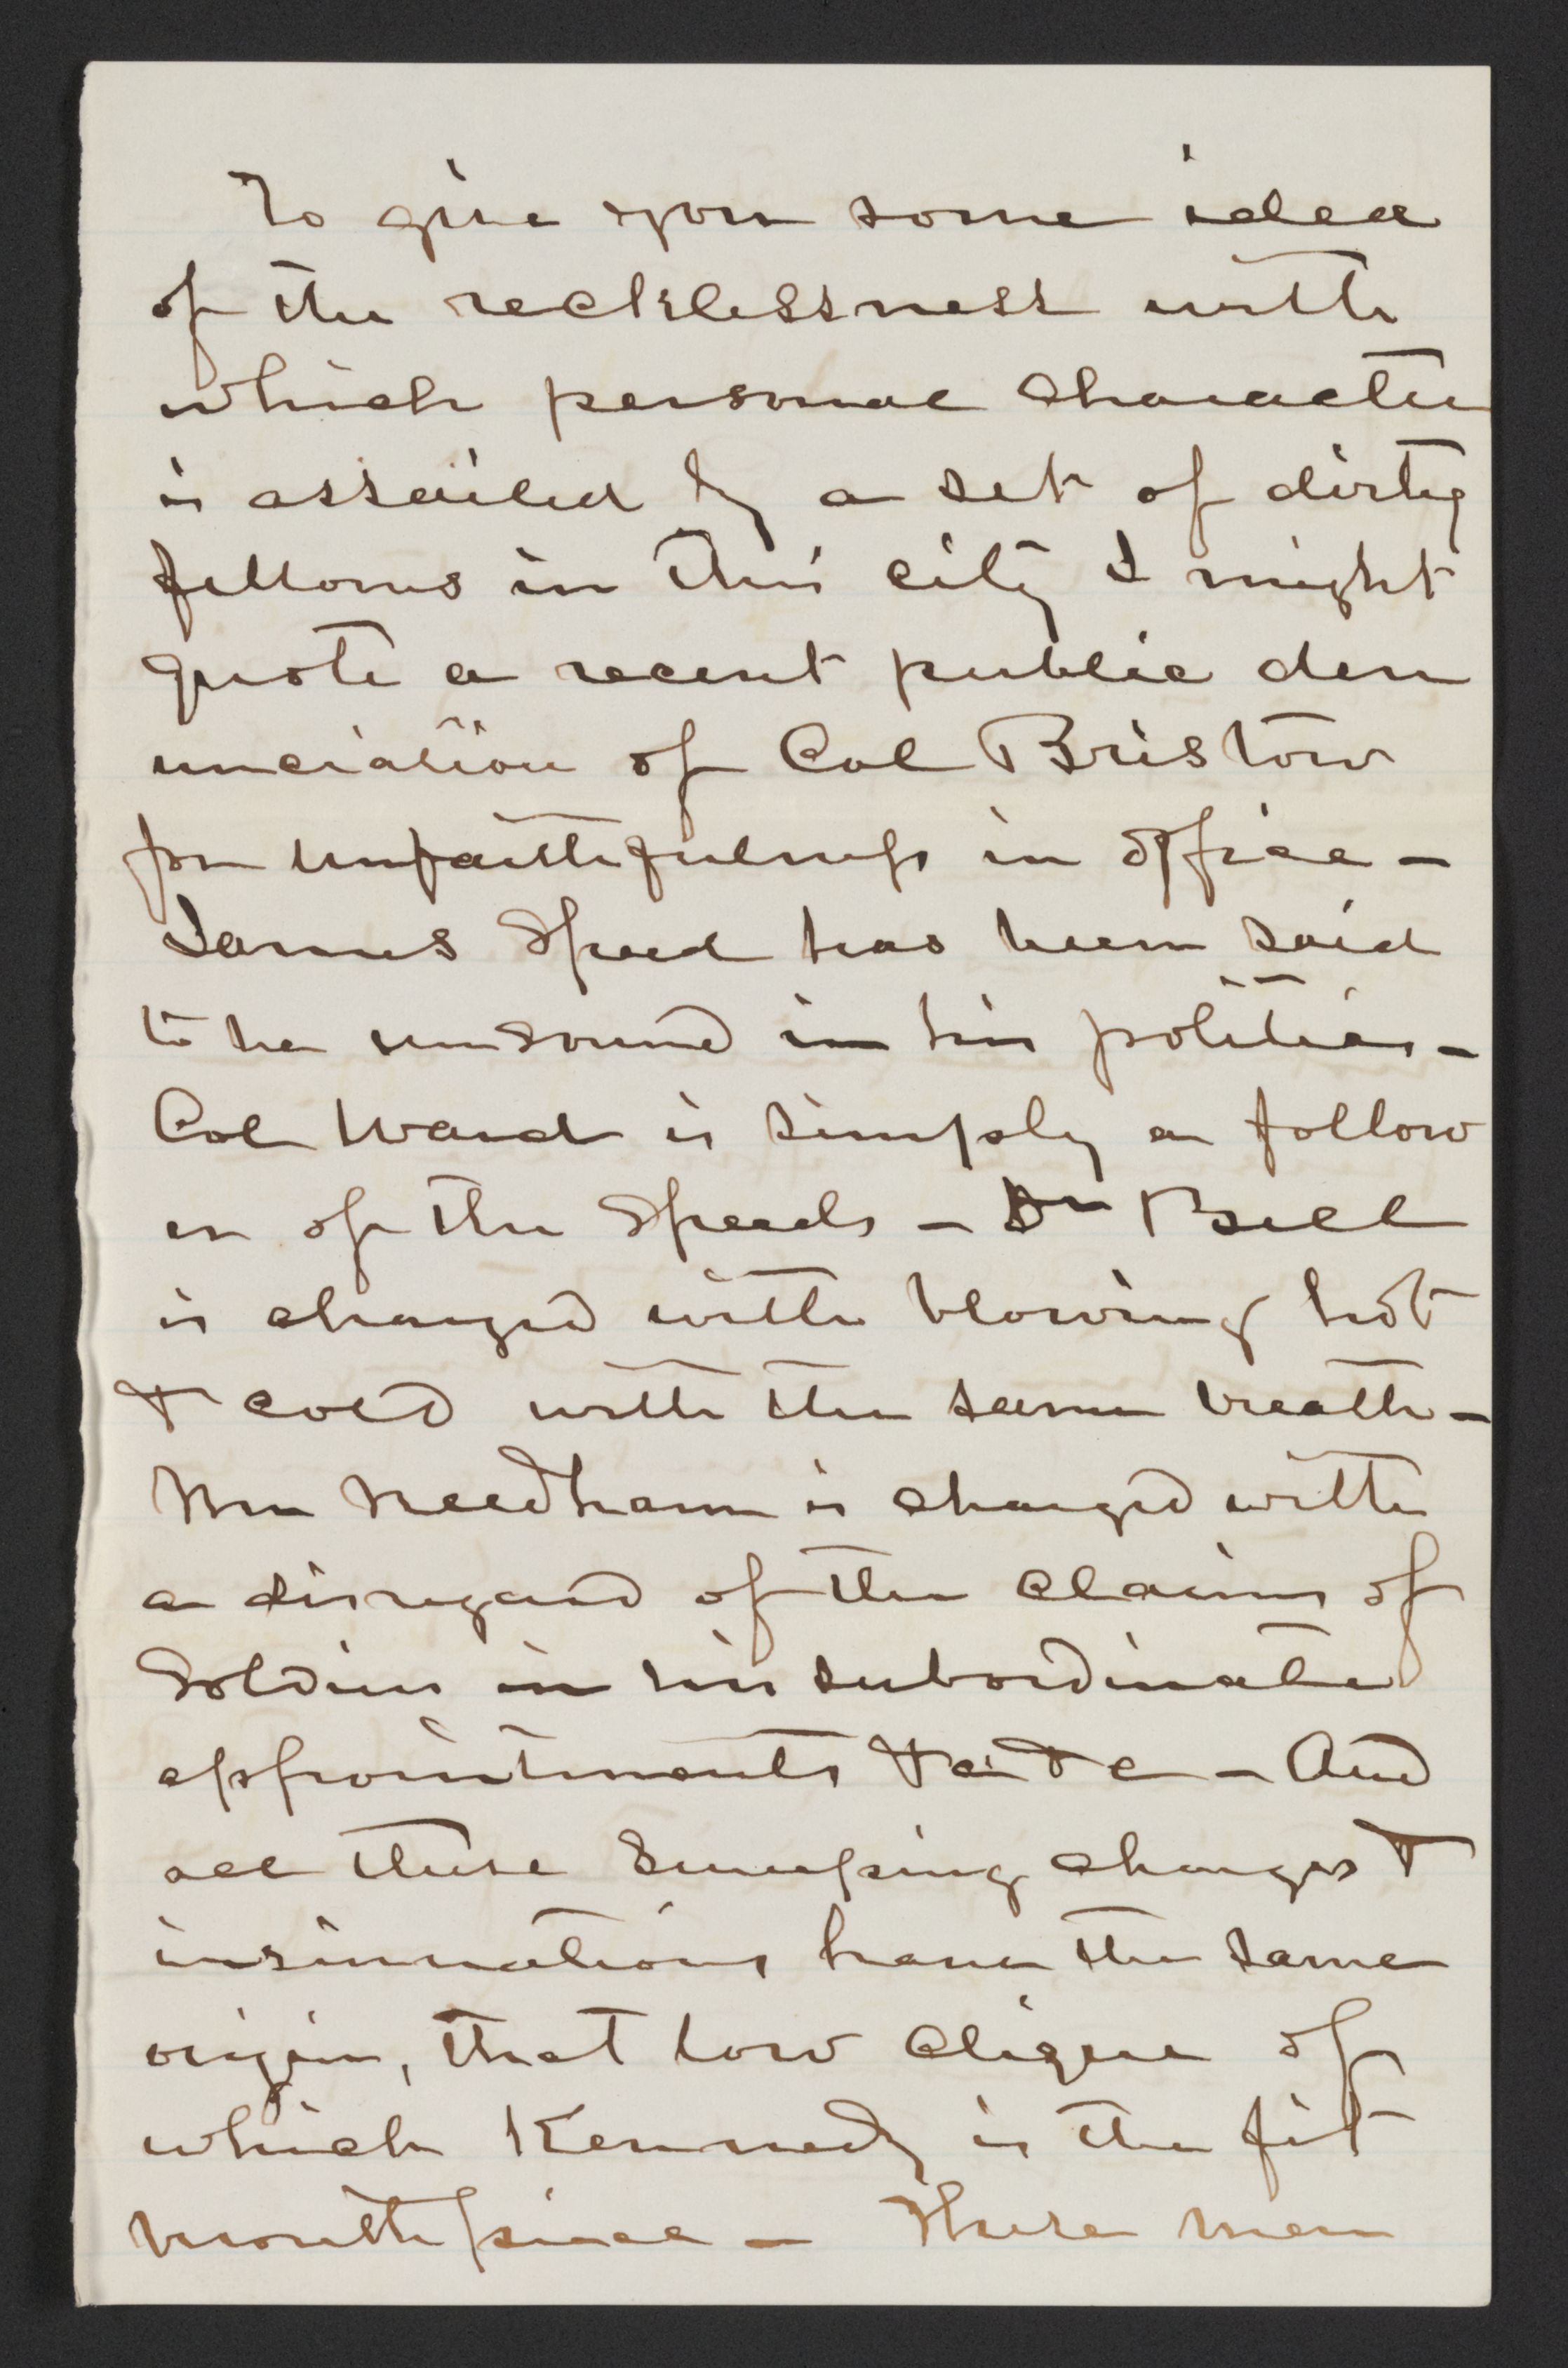 To give you some idea
of the recklessness with
which personal character
is assailed by a set of dirty
fellows in this city I might
quote a recent public den
unciation of Col Bristow
for unfaithfulness in office -
James Speed has been said
to be unsound in his politics -
Col Ward is simply a follow
er of the Speeds - Dr Bell
is charged with blowing hot
& cold with the same breath -
Mr Needham is charged with
a disregard of the claims of
Soldiers in his subordinate
appointments &c &c - And
all these Sweeping charges &
insinuations have the same
origin, that low clique of
which Kennedy is the fit
mouthpiece - These men